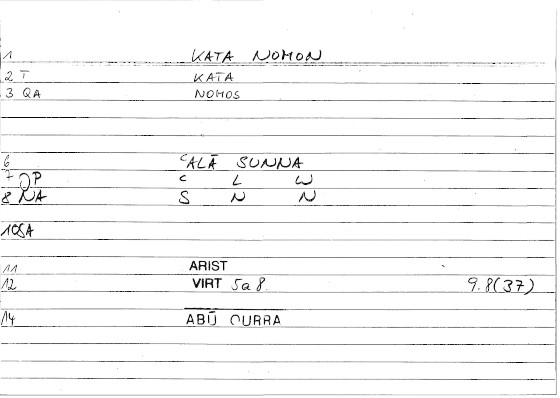 1 KATA NOMON
2 T KATA
3 QA NOMOS
6 ʿALĀ SUNNA
7 OP ʿ L W
8 NA S N N
10 SA
11 ARIST
12 VIRT 5a8 9.8(37)
14 ABŪ QURRA